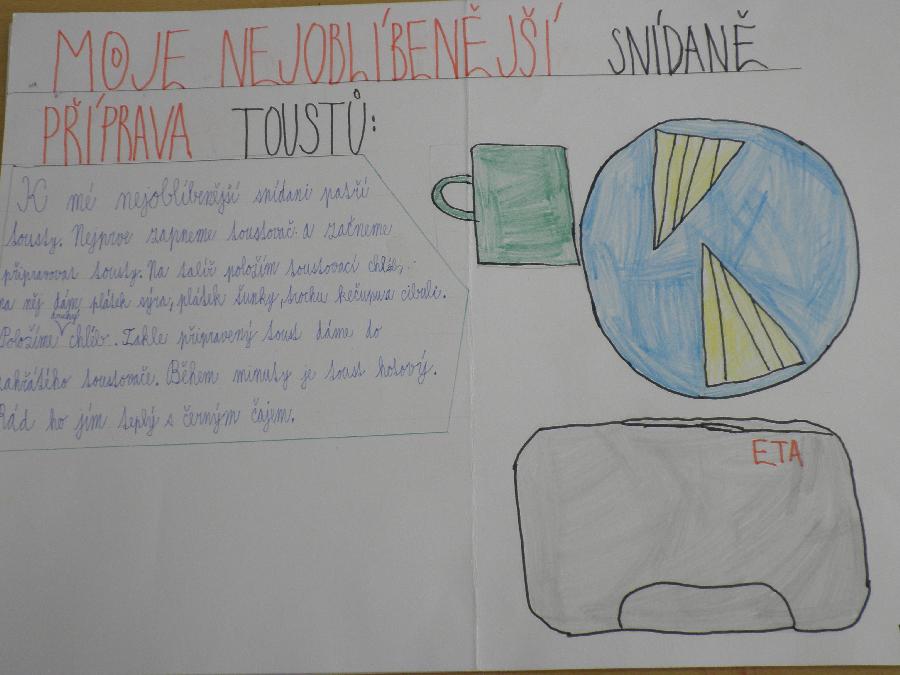 MOJE NEJOBLÍBENĚJŠÍ SNÍDANĚ
PŘÍPRAVA TOUSTŮ:
K mé nejoblíbenější snídani patří
tousty. Nejprve zapneme toustovač a začneme
připravovat tousty. Na talíř položím toustovací chléb,
na něj dám plátek sýra, plátek šunky, trochu kečupu a cibuli.
druhý
Položíme chléb. Takle připravený toust dáme do
nahřátého toustovače. Během minuty je toust hotový.
Rád ho jím teplý s černým čajem.
ETA